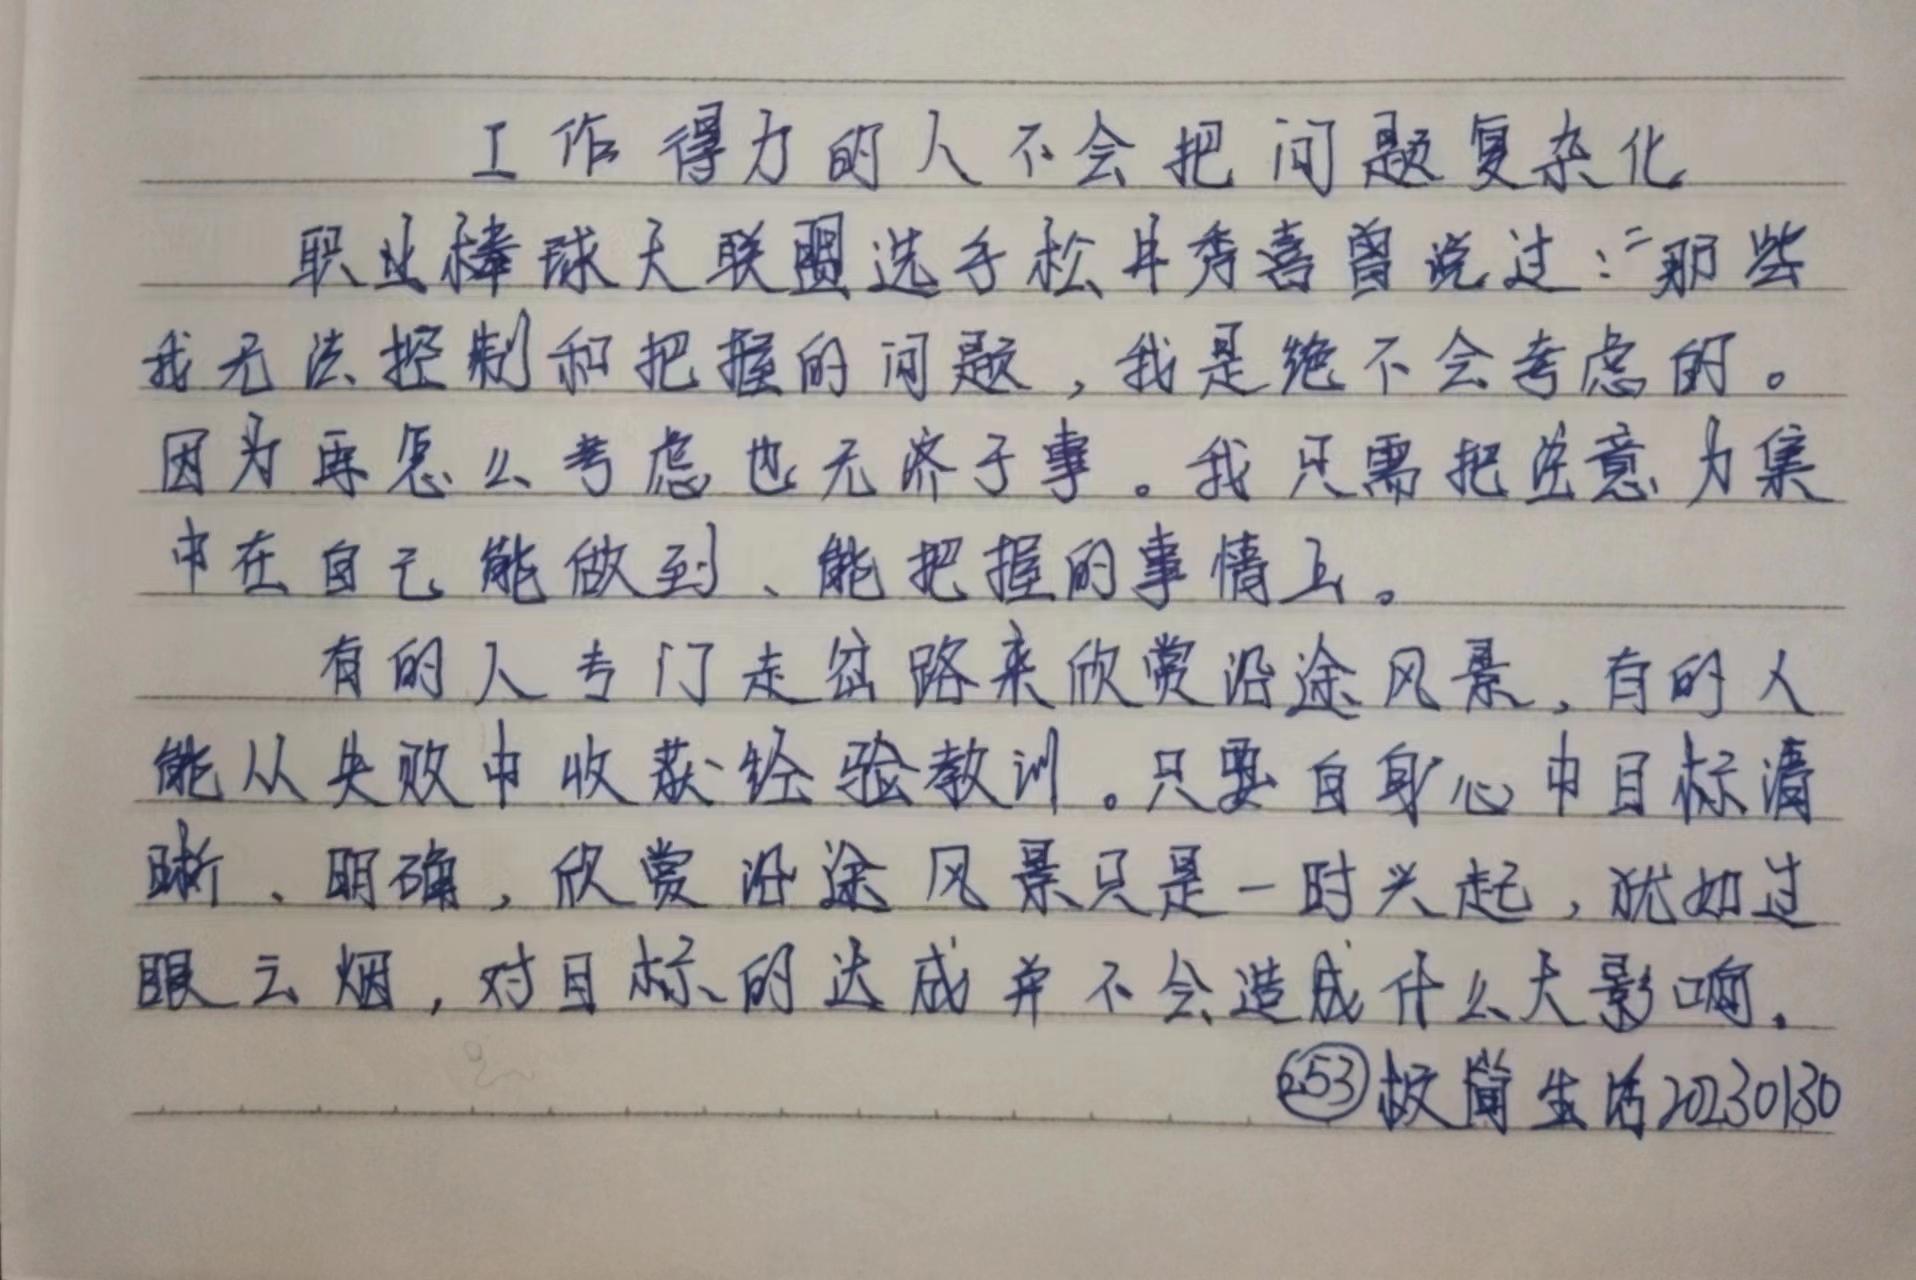 工作得力的人不会把问题复杂化
职业棒球大联盟选手松井秀喜曾说过:“那些
我无法控制和把握的问题,我是绝不会考虑的。
因为再怎么考虑也无济于事。我只需把注意力集
中在自己能做到、能把握的事情上。
有的人专门走岔路来欣赏沿途风景,有的人
能从失败中收获经验教训。只要自身心中目标清
晰、明确,欣赏沿途风景只是一时兴起,犹如过
眼云烟,对目标的达成并不会造成什么大影响.
253 极简生活20230130